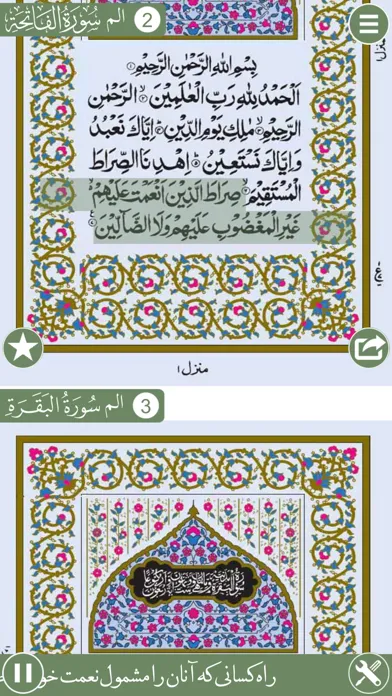 الم سُوْرَةُ الْفَاتِحَة 2
منزل۱
بِسْمِ اللهِ الرَّحْمٰنِ الرَّحِيْمِ
اَلْحَمْدُ لِلّٰهِ رَبِّ الْعٰلَمِيْنَ الرَّحْمٰنِ
الرَّحِيْمِ مٰلِكِ يَوْمِ الدِّيْنِ اِيَّاكَ نَعْبُدُ
وَاِيَّاكَ نَسْتَعِيْنُ اِهْدِنَا الصِّرَاطَ
الْمُسْتَقِيْمَ صِرَاطَ الَّذِيْنَ اَنْعَمْتَ عَلَيْهِمْ
غَيْرِ الْمَغْضُوْبِ عَلَيْهِمْ وَلَا الضَّآلِّيْنَ
منزل ۱
الم سُوْرَةُ الْبَقَرَةِ 3
راه کسانی که آنان را مشمول نعمت خو